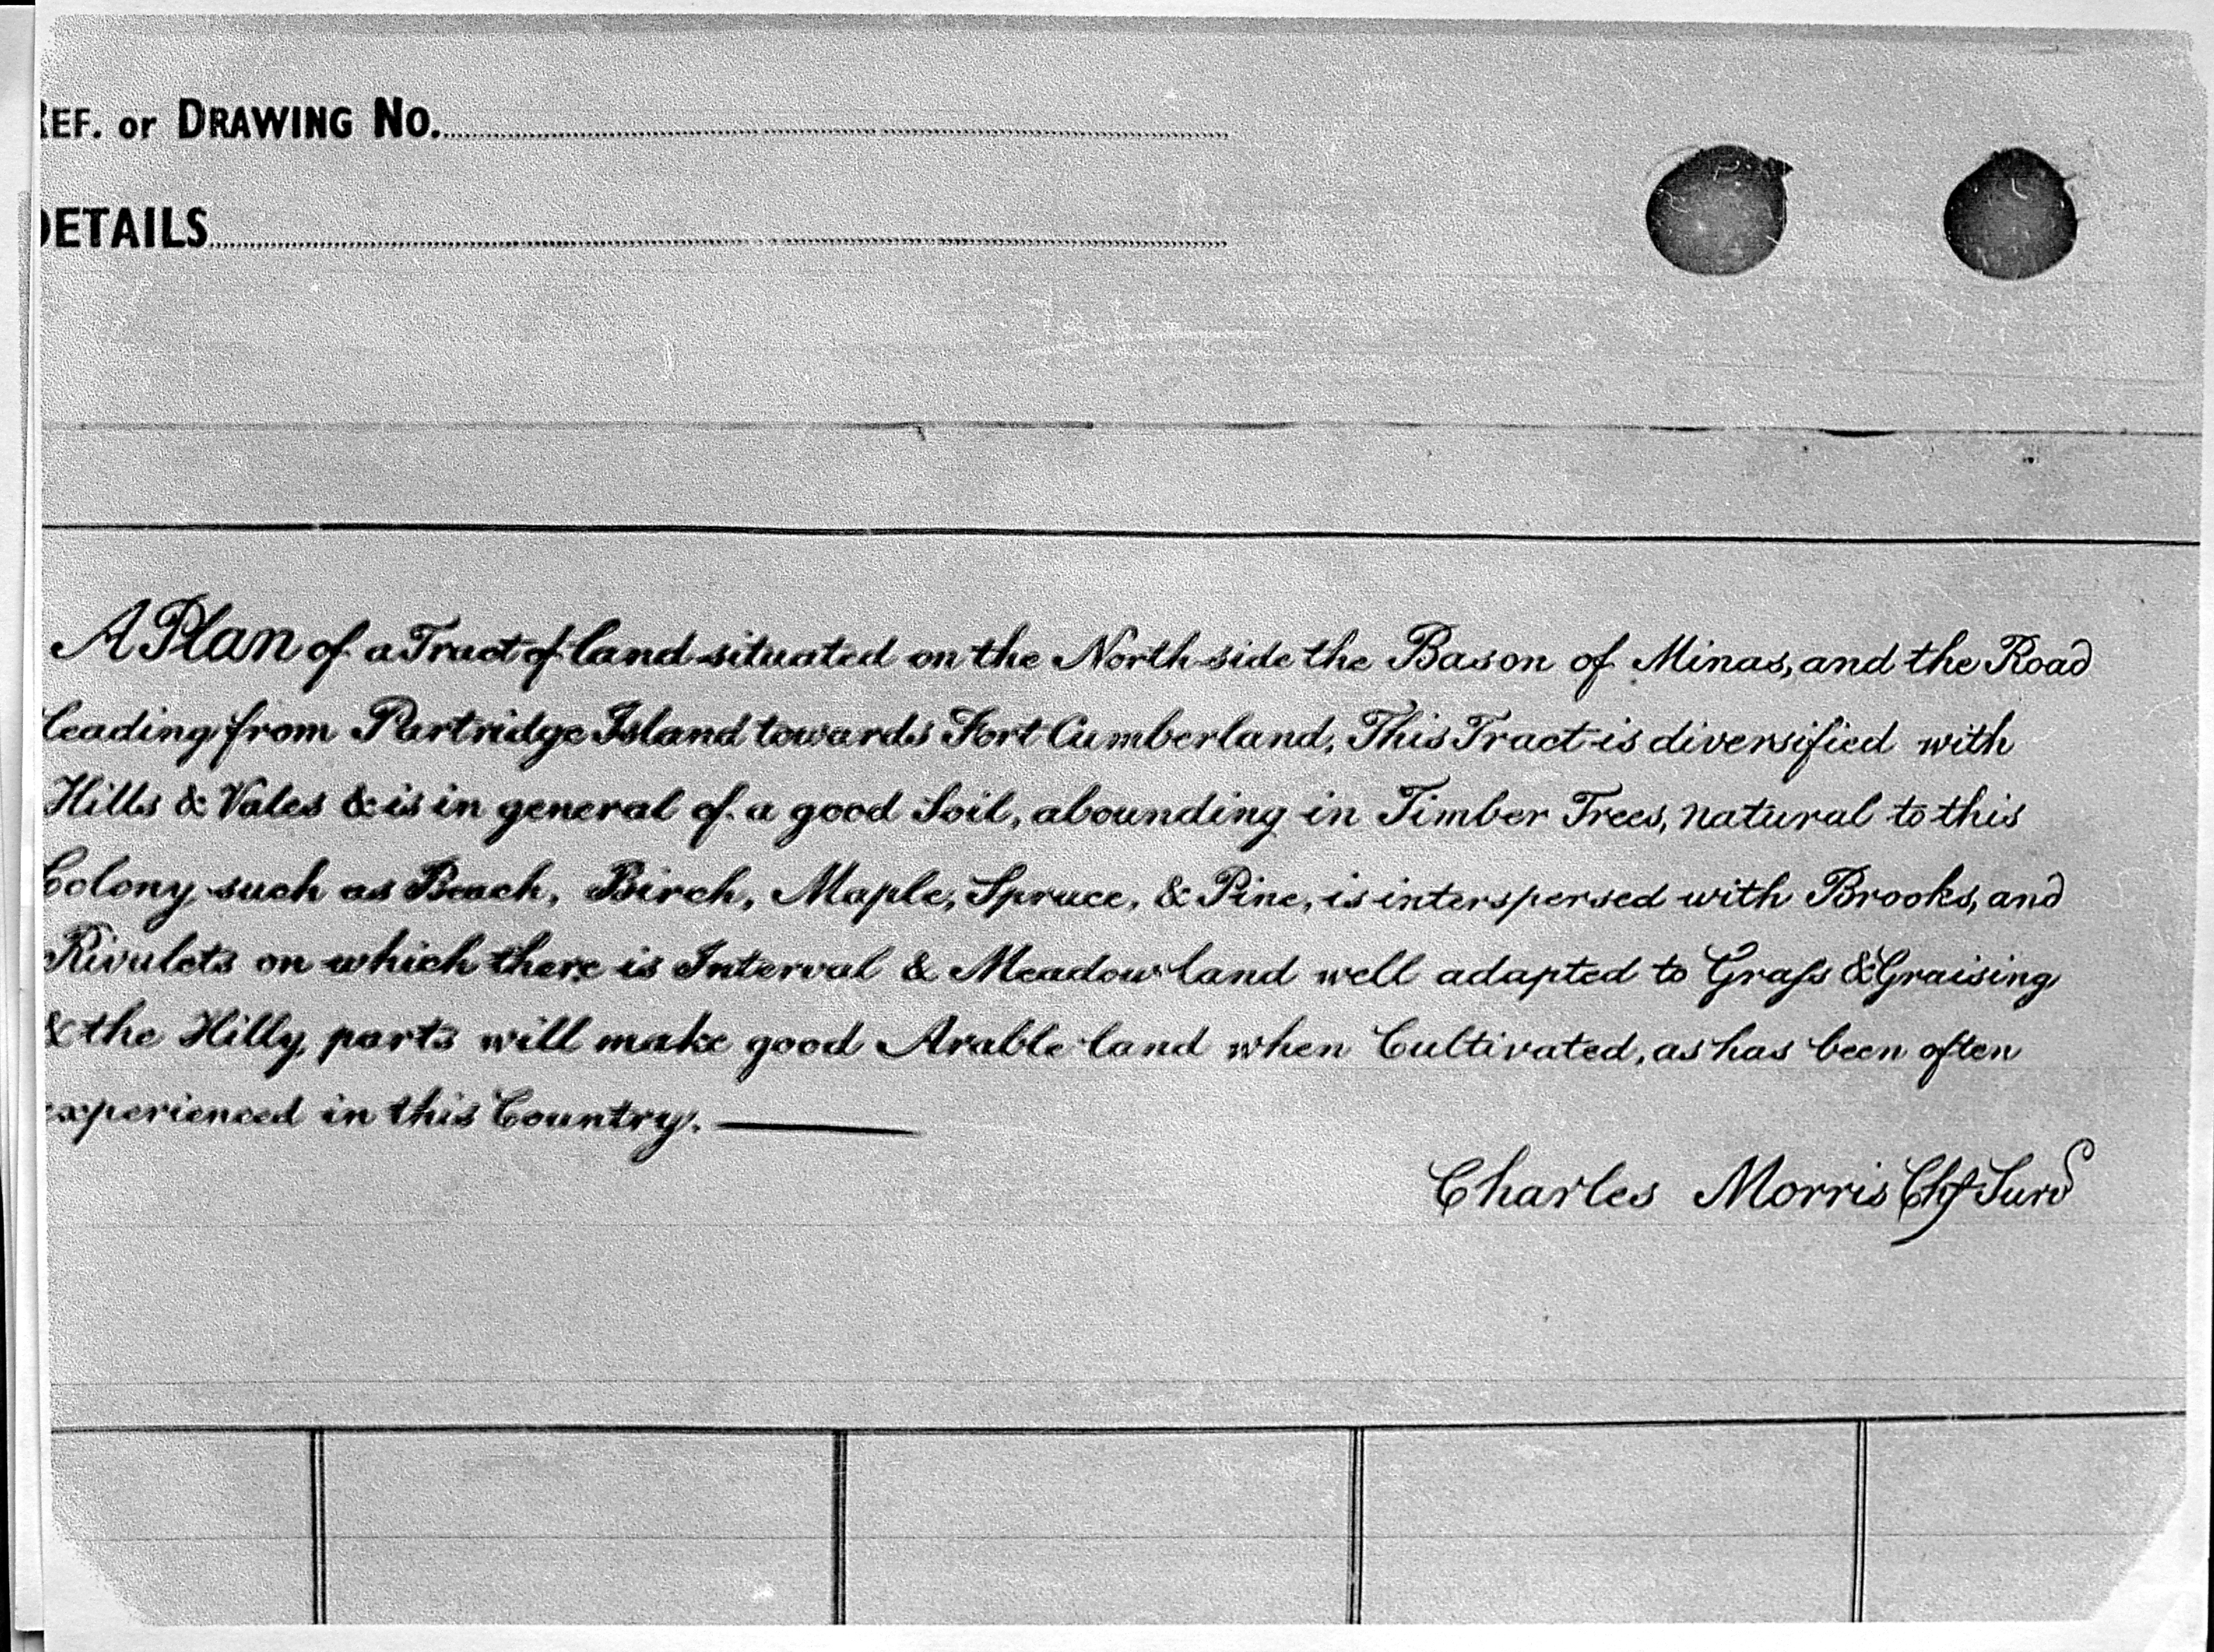 REF. or DRAWING No.
DETAILS
A Plan of a Tract of land situated on the North side the Bason of Minas, and the Road
leading from Partridge Island towards Fort Cumberland, This Tract is diversified with
Hills & Vales & is in general of a good Soil, abounding in Timber Trees, natural to this
Colony such as Beach, Birch, Maple, Spruce, & Pine, is interspersed with Brooks, and
Rivulets on which there is Interval & Meadow land well adapted to Graſs & Graising
& the Hilly parts will make good Arable land when Cultivated, as has been often
experienced in this Country.
Charles Morris Chf Surv